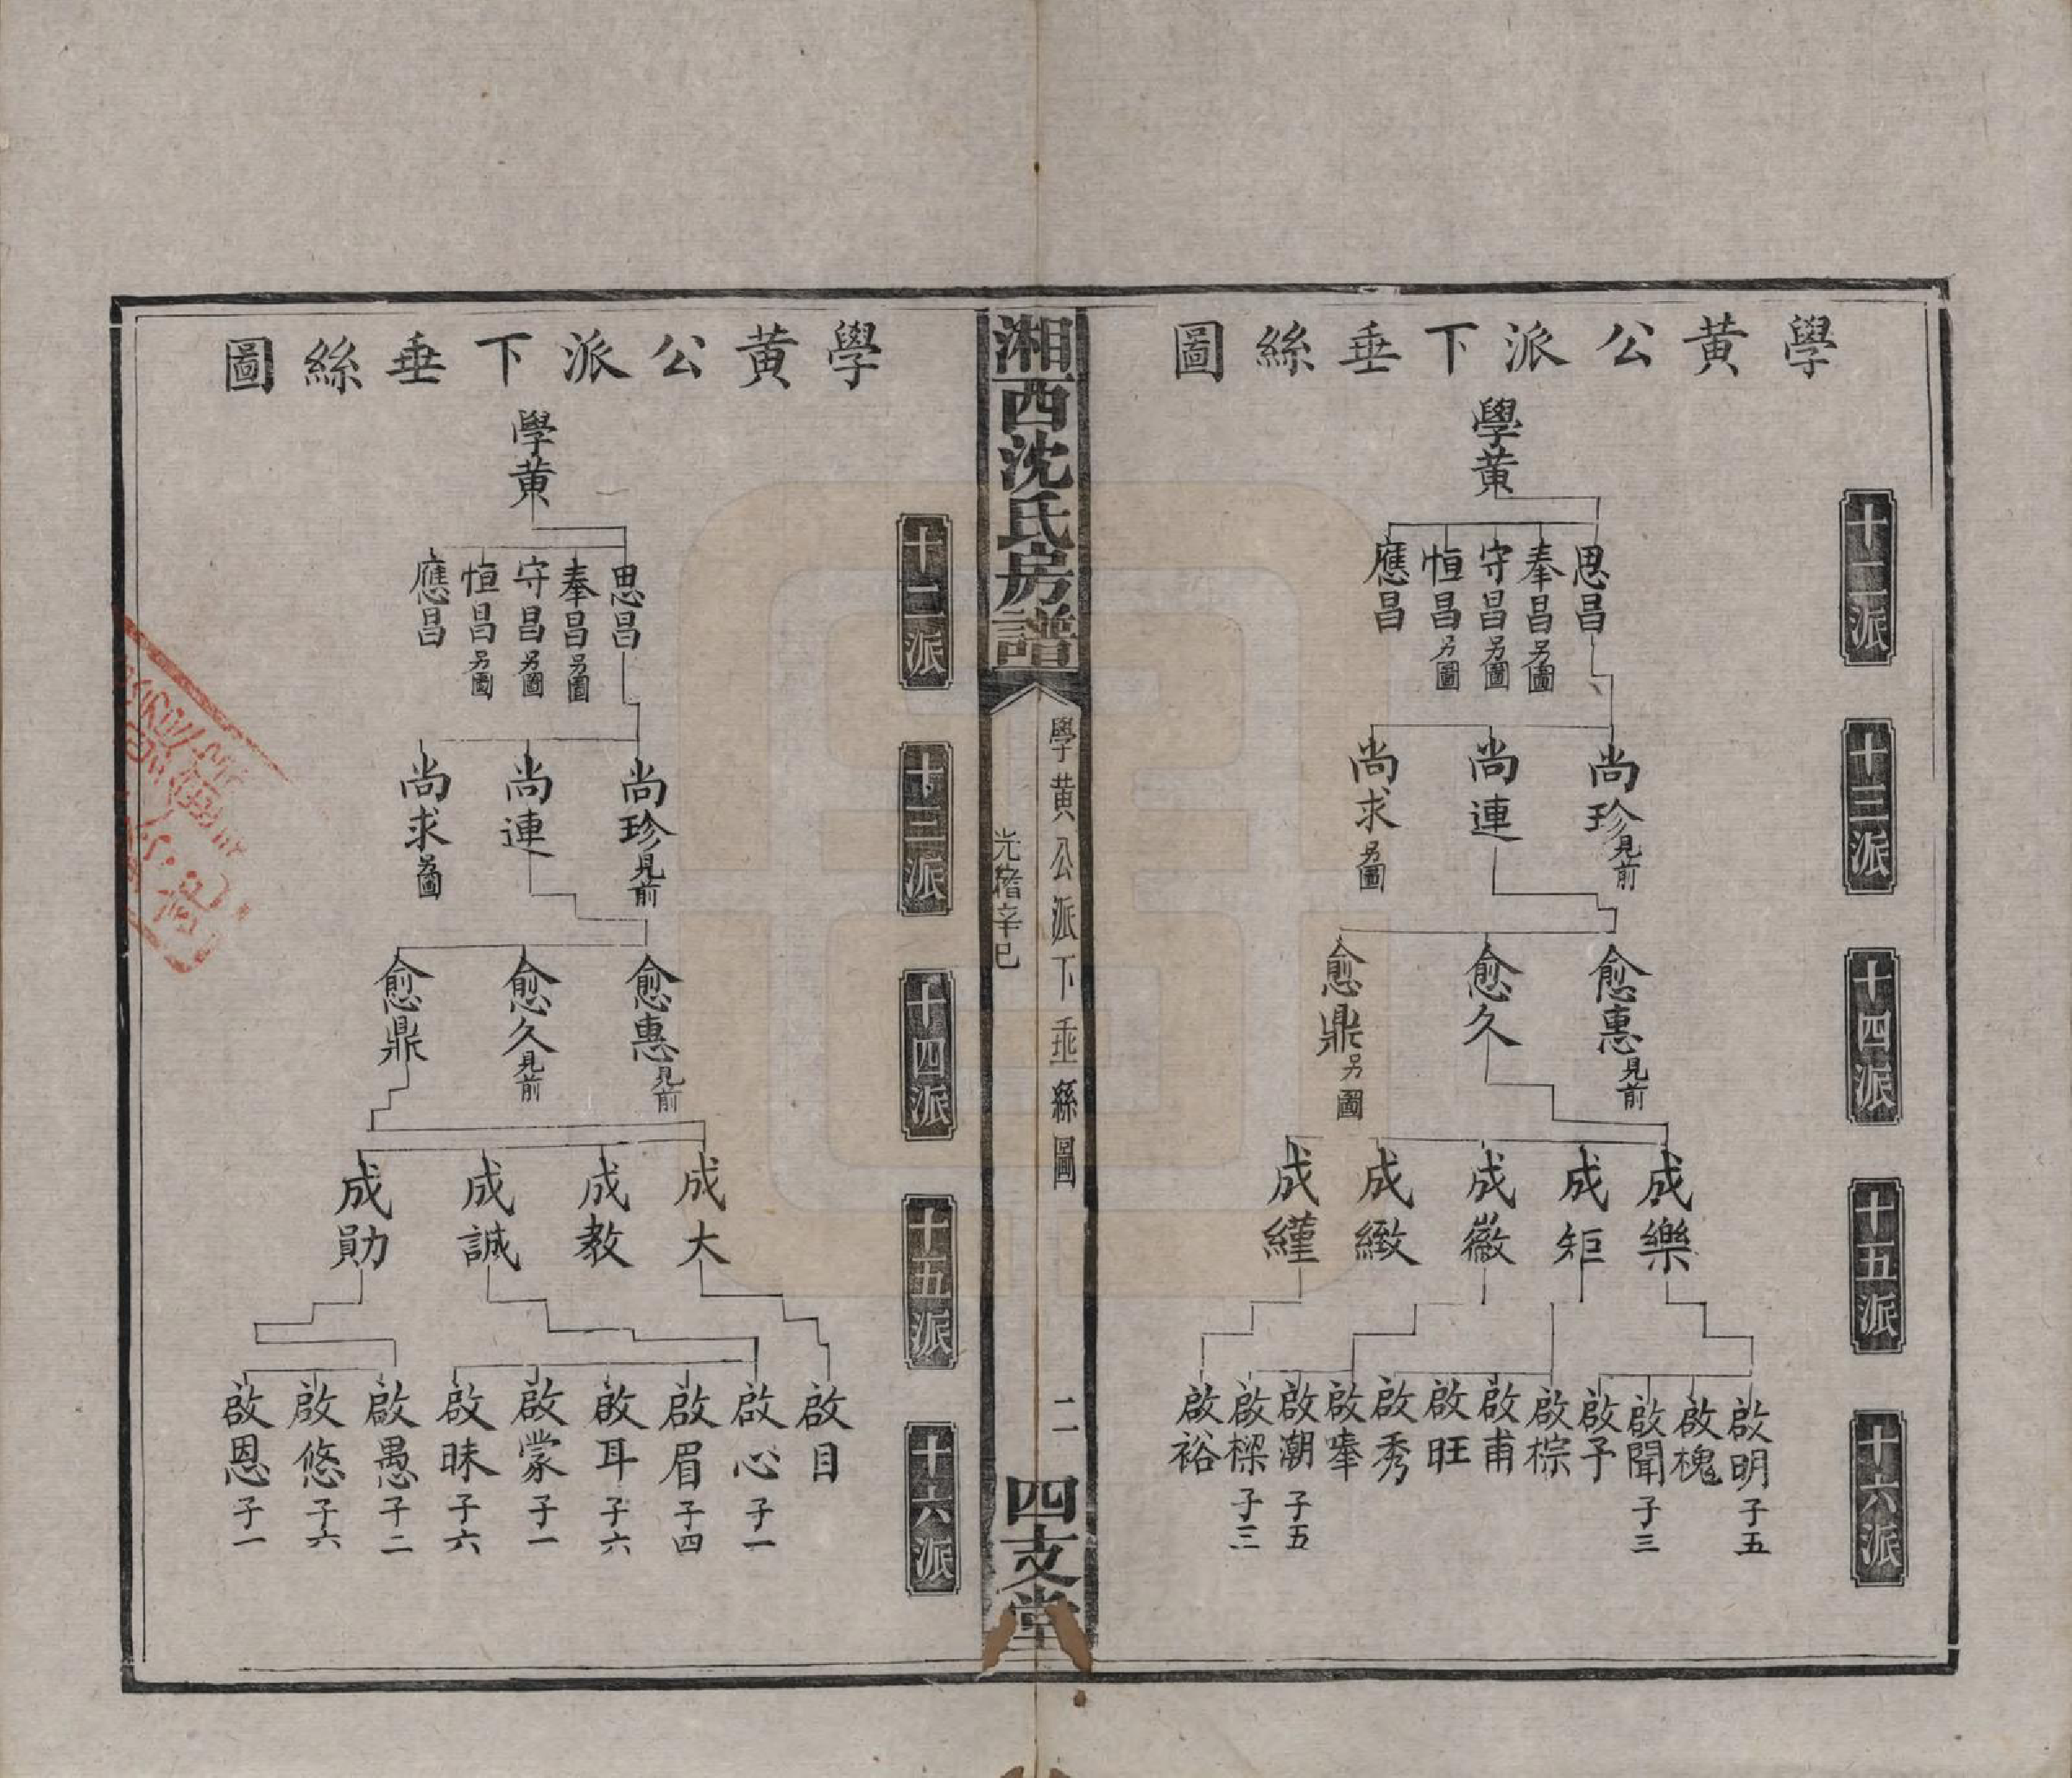 學黄公派下垂絲圖
十二派
十三派
十四派
十五派
十六派
學黄
思昌
奉昌另圖
守昌另圖
恒昌另圖
應昌
尚珍見前
尚連
尚求另圖
愈惠見前
愈久
愈鼎另圖
成樂
成矩
成徽
成緻
成繣
啟明子五
啟槐
啟聞子三
啟予
啟棕
啟甫
啟旺
啟秀
啟唪
啟潮子五
啟樑子三
啟裕
湘西沈氏房譜
學黄公派下垂絲圖
光緒辛巳
二
四支堂
學黄公派下垂絲圖
十二派
十三派
十四派
十五派
十六派
學黄
思昌
奉昌另圖
守昌另圖
恒昌另圖
應昌
尚珍見前
尚連
尚求另圖
愈惠見前
愈久見前
愈鼎
成大
成教
成誠
成勛
啟目
啟心子一
啟眉子四
啟耳子六
啟蒙子一
啟昧子六
啟愚子二
啟悠子六
啟恩子一